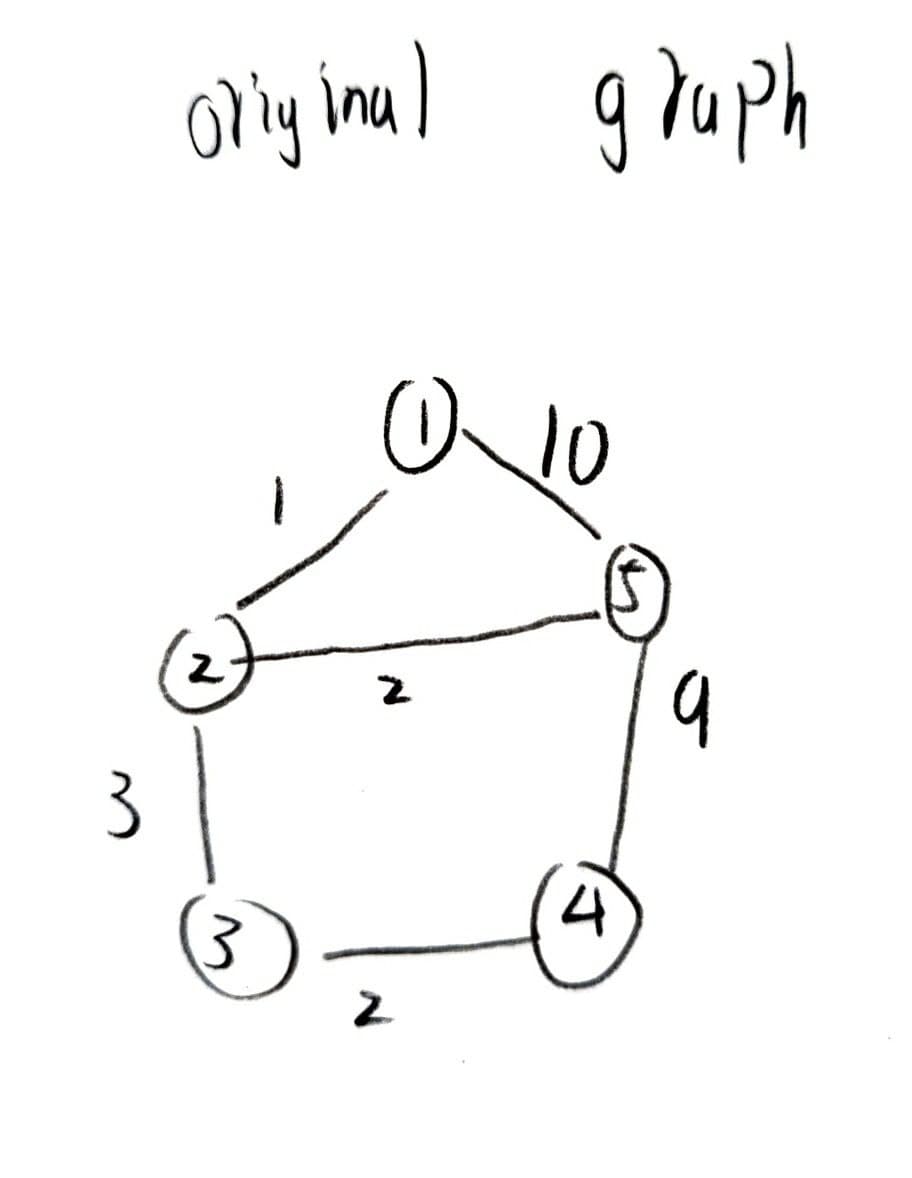 original graph
1
10
1
5
2
2
9
3
4
3
2